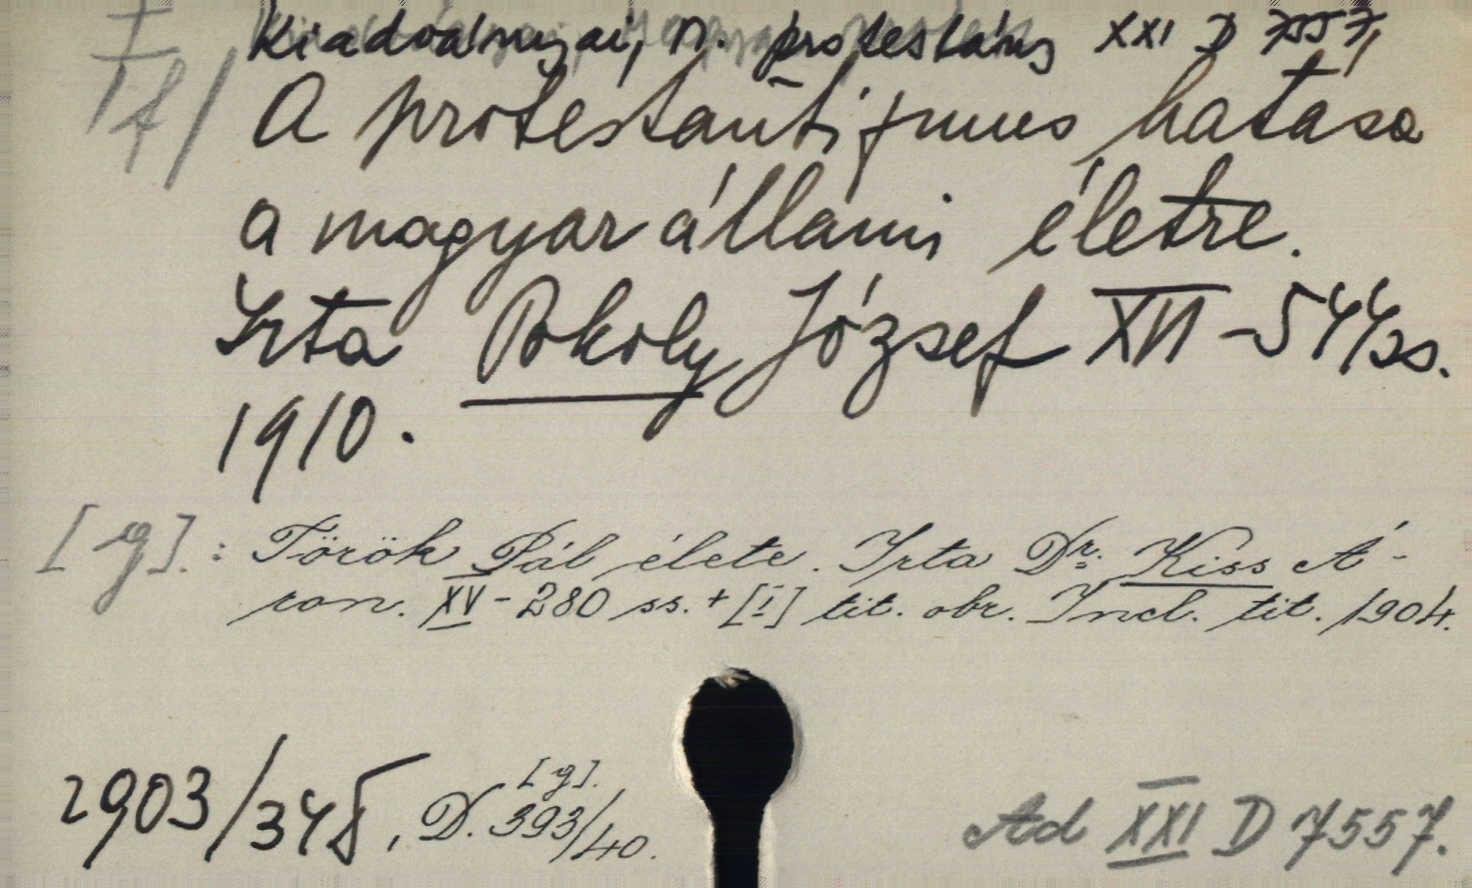 I Kiadványai, M. protestáns XXI D 7557,
1f/ A protestántizmus hatása
a magyar állami életre.
Irta Pokoly József XVI - 544 ss.
1910.
[g]. : Török Pál élete. Irta Dr. Kiss Á-
ron. XV - 280 ss. + [I] tit. obr. Incl. tit. 1904.
[g].
2903/345, D. 393/40.
Ad XXI D 7557.